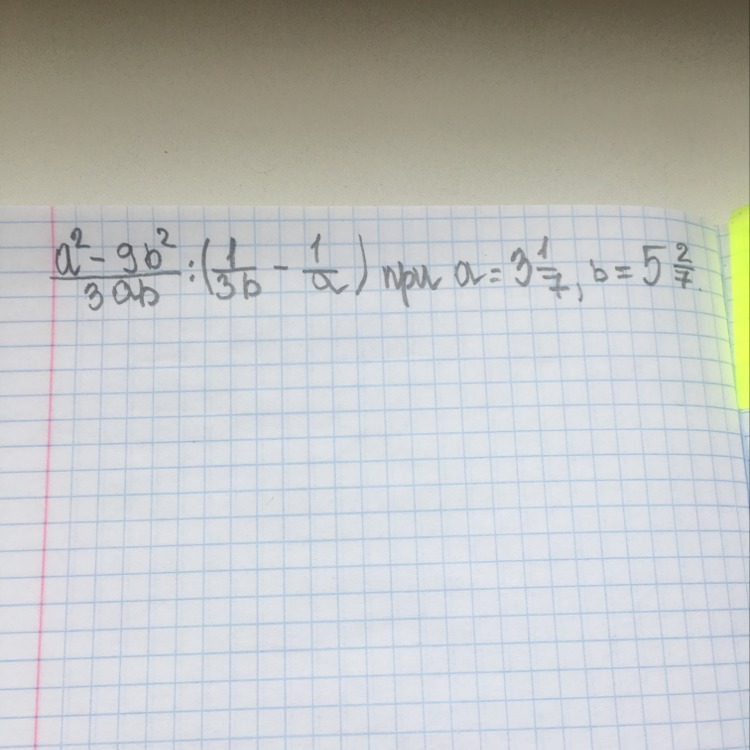 \frac{a^2 - 9b^2}{3ab} : \left( \frac{1}{3b} - \frac{1}{a} \right) при a = 3\frac{1}{7}, b = 5\frac{2}{7}.